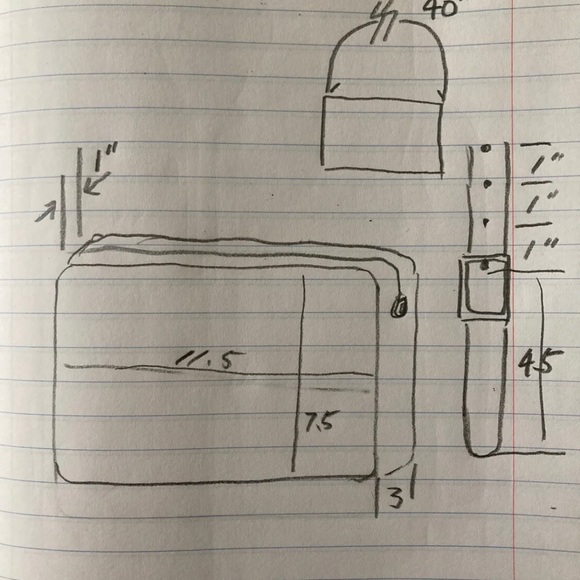 40"
1"
1"
1"
1"
11.5
4.5
7.5
3